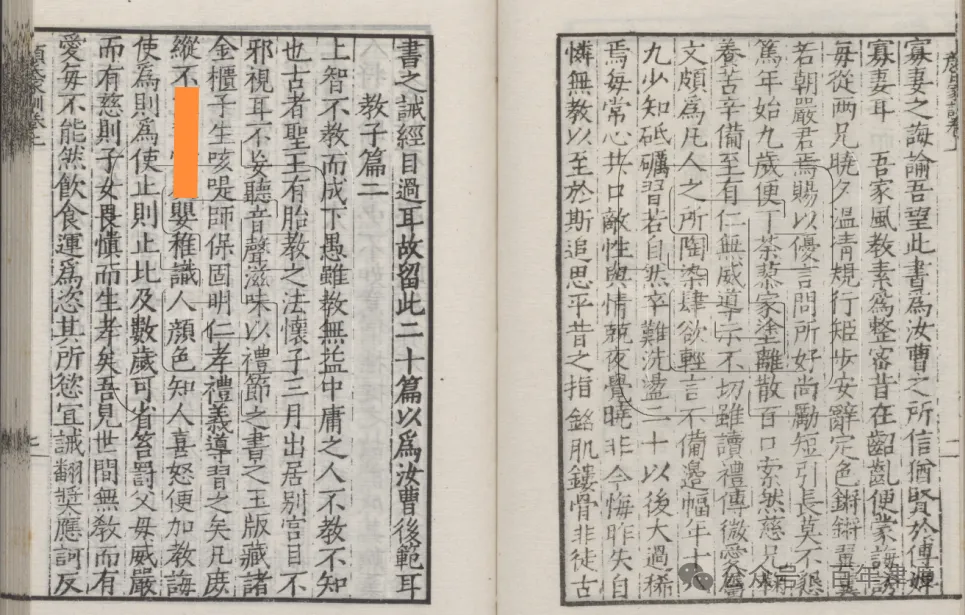 寡妻之誨諭吾望此書爲汝曹之所信猶賢於傅婢
寡妻耳 吾家風教素爲整密昔在齠齔便蒙誨誘
每從兩兄曉夕溫凊規行矩步安辭定色鏘鏘翼翼
若朝嚴君焉賜以優言問所好尚勵短引長莫不懇
篤年始九歲便丁荼蓼家塗離散百口索然慈兄
養苦辛備至有仁無威導示不切雖讀禮傳微愛
文頗爲凡人之所陶染肆欲輕言不備邊幅年十
九少知砥礪習若自然卒難洗盪二十以後大過稀
焉每常心共口敵性與情競夜覺曉非今悔昨失自
憐無教以至於斯追思平昔之指銘肌鏤骨非徒古
書之誡經目過耳故留此二十篇以爲汝曹後範耳
教子篇二
上智不教而成下愚雖教無益中庸之人不教不知
也古者聖王有胎教之法懷子三月出居別宮目不
邪視耳不妄聽音聲滋味以禮節之書之玉版藏諸
金櫃子生咳㖷師保固明仁孝禮義導習之矣凡庶
縱不嬰稚識人顏色知人喜怒便加教誨
使爲則爲使止則止比及數歲可省笞罰父母威嚴
而有慈則子女畏慎而生孝矣吾見世間無教而有
愛每不能然飲食運爲恣其所慾宜誡翻獎應訶反
公众号 百年津